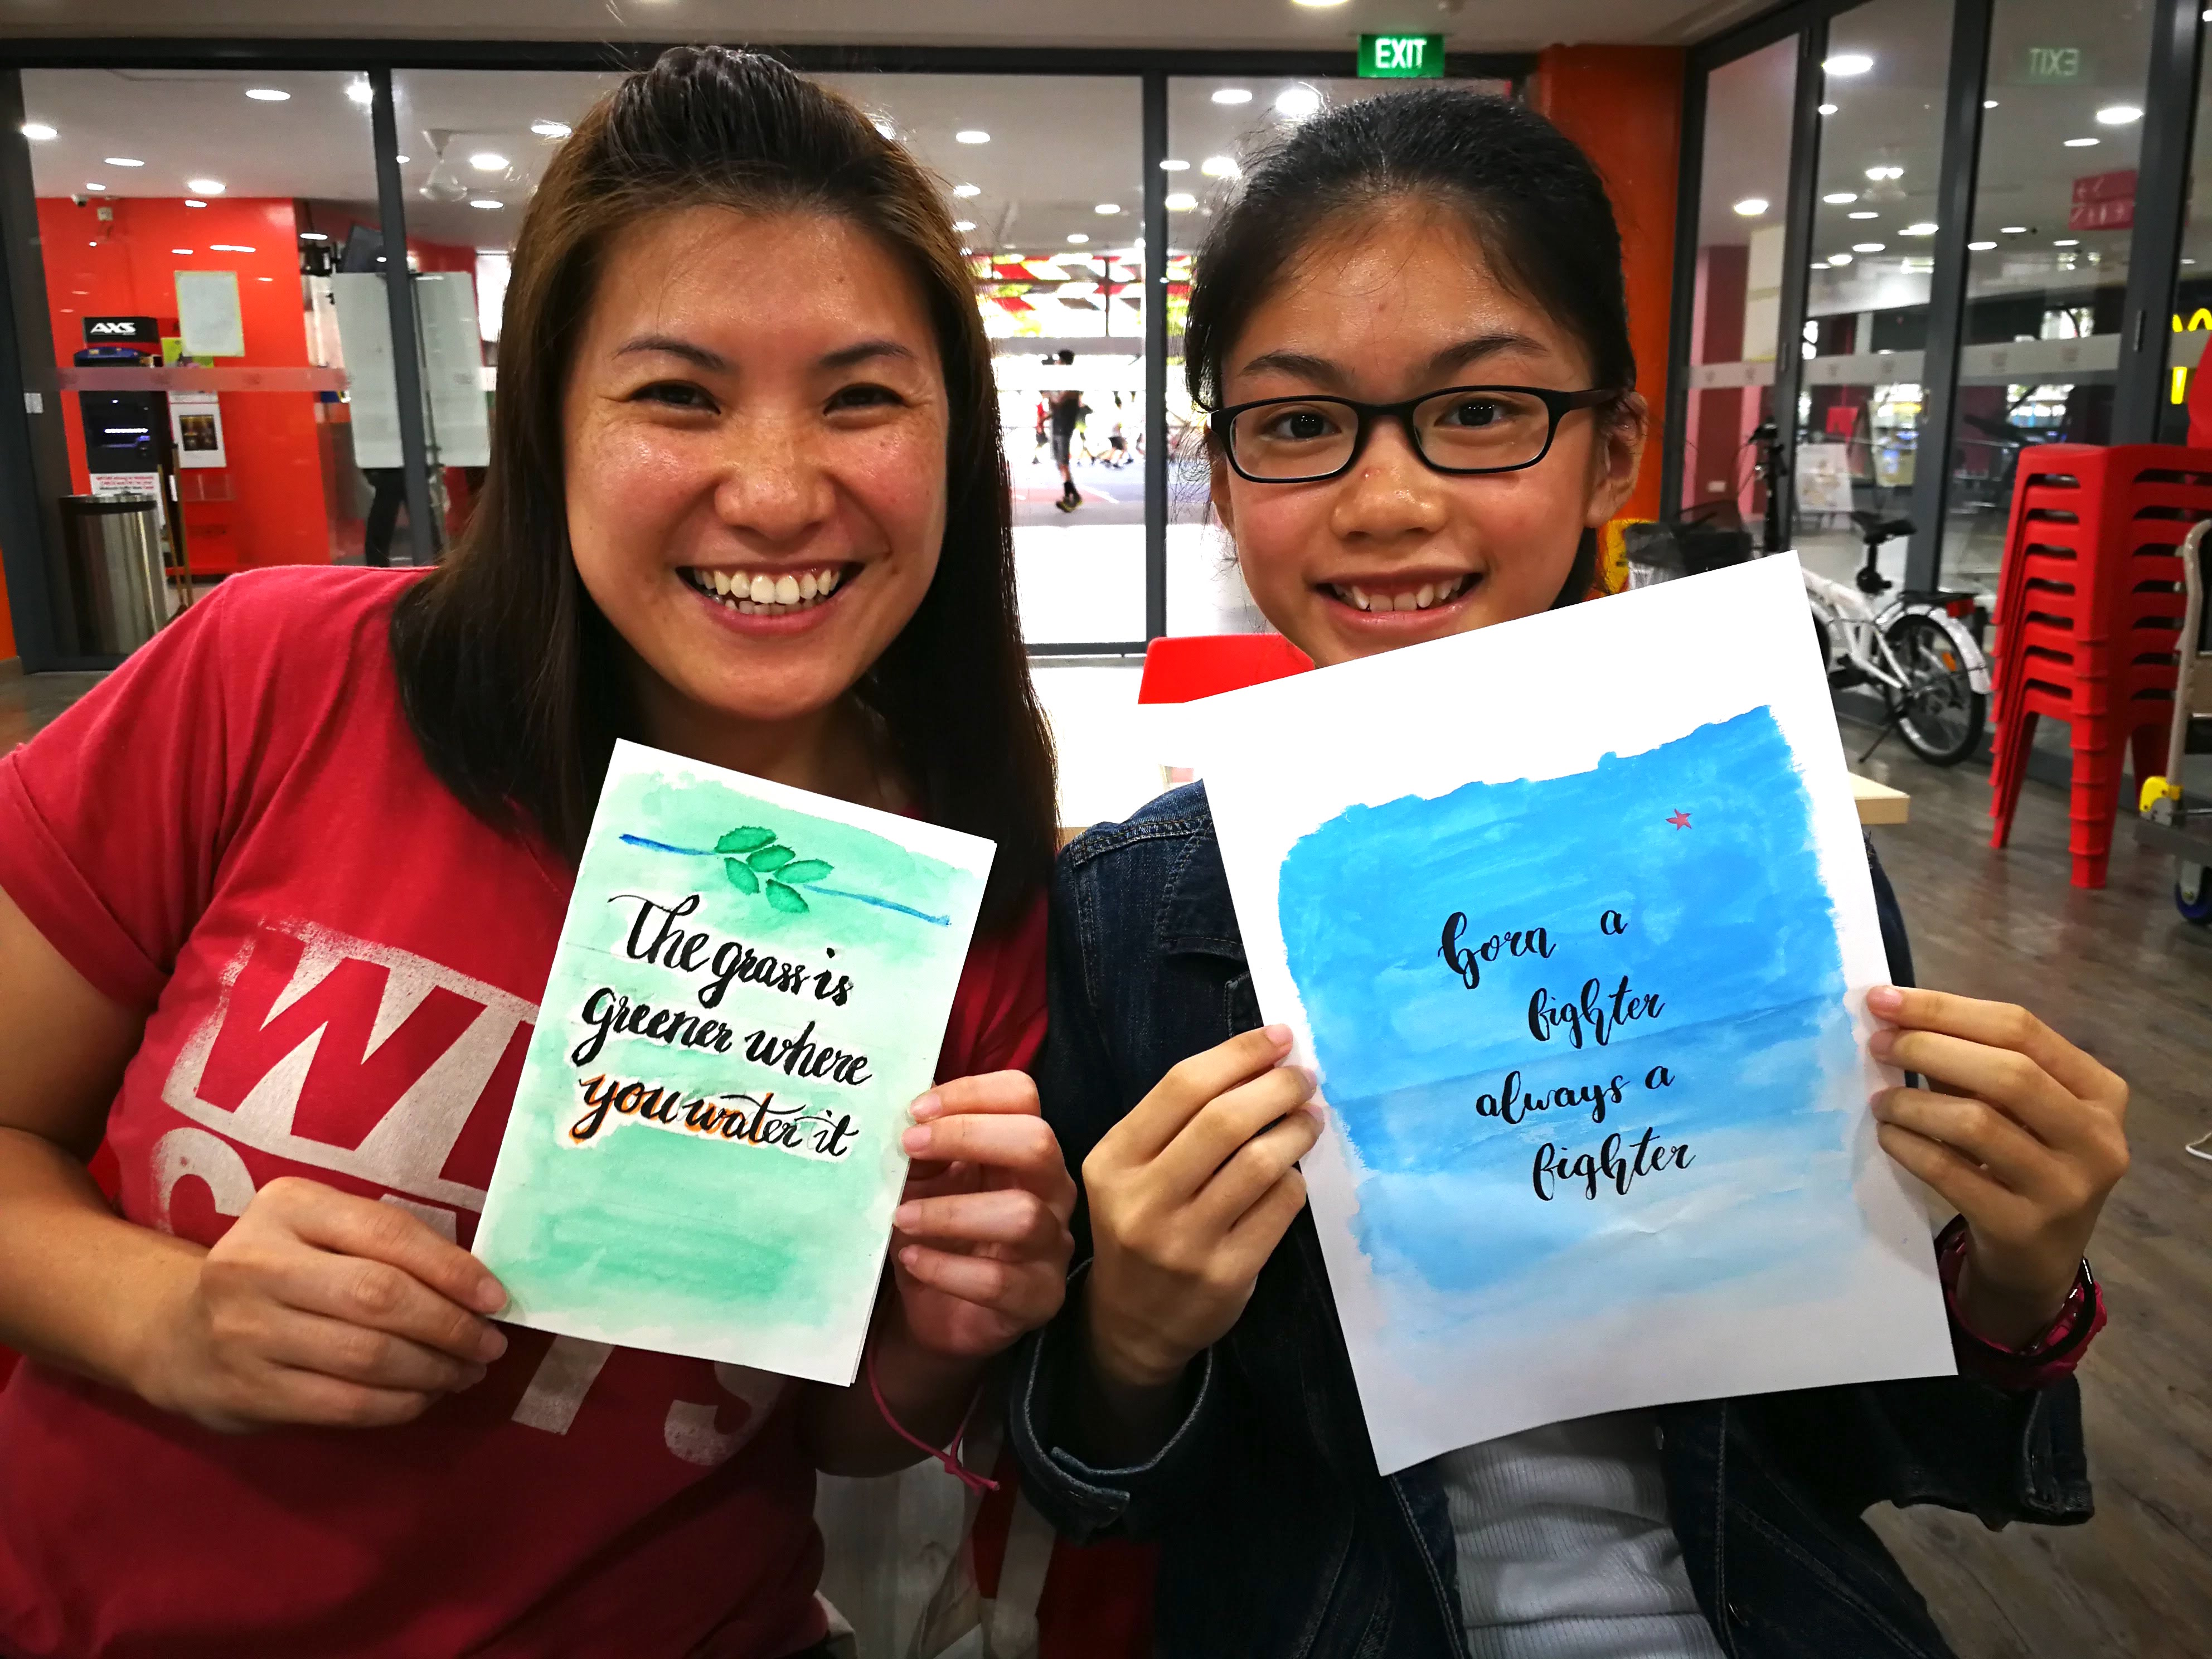 EXIT
EXIT
AXS
The grass is
greener where
you water it
born a
fighter
always a
fighter